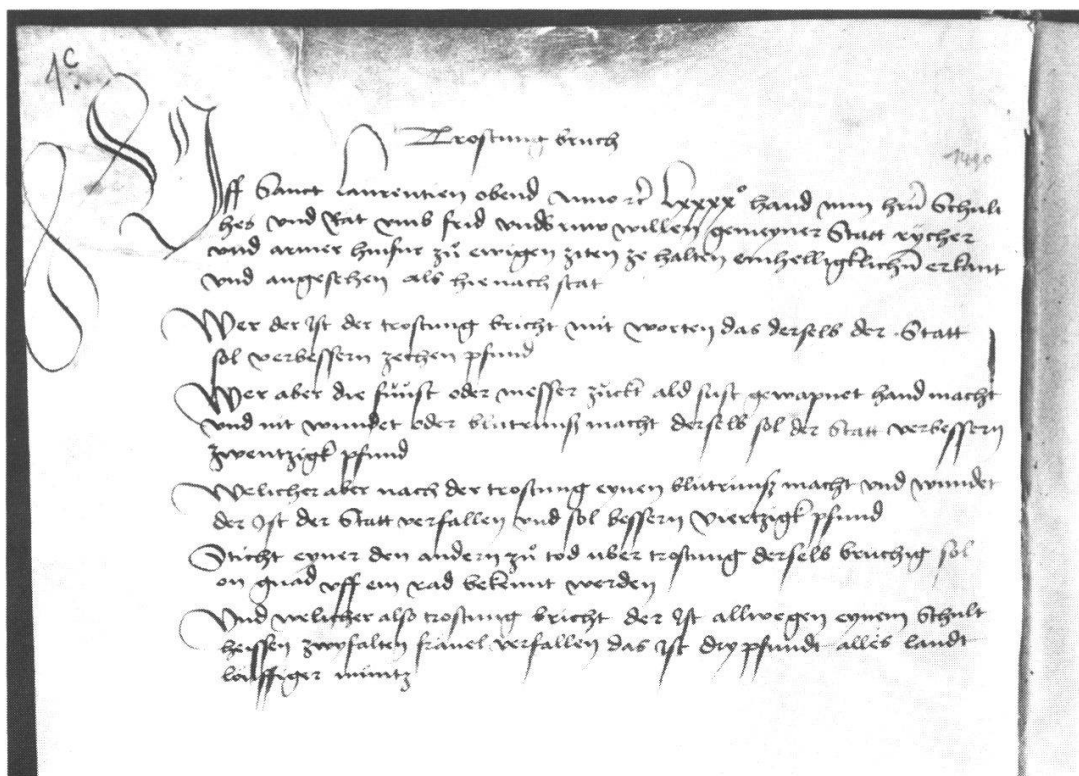 1c
Trostung bruch
1490
Uff Sanct Laurentien obend anno etc Lxxxx° hand min hrn Schult
hes und Rat umb frid und ruw willen gemeyner Statt rycher
und armer hinfur zů ewigen ziten ze halten einhelligklichen erkant
und angesehen als hienach stat
Wer der ist der trostung bricht mit worten das derselb der Statt
sol verbessern zechen pfund
Wer aber die fůust oder messer zuckt ald sust gewapnet hand macht
und nit wundet oder blutrunsz macht derselb sol der Statt verbessern
zwentzigk pfund
Welicher aber nach der trostung eynen blutrunsz macht und wundet
der ist der Statt verfallen und sol bessern viertzigk pfund
Sticht eyner den andern zů tod uber trostung derselb bruchig sol
on gnad uff ein rad bekennt werden
Und welicher also trostung bricht der ist allwegen eynem Schult
heissen zwyfalten fravel verfallen das ist dry pfundt alles landt
louffiger muntz